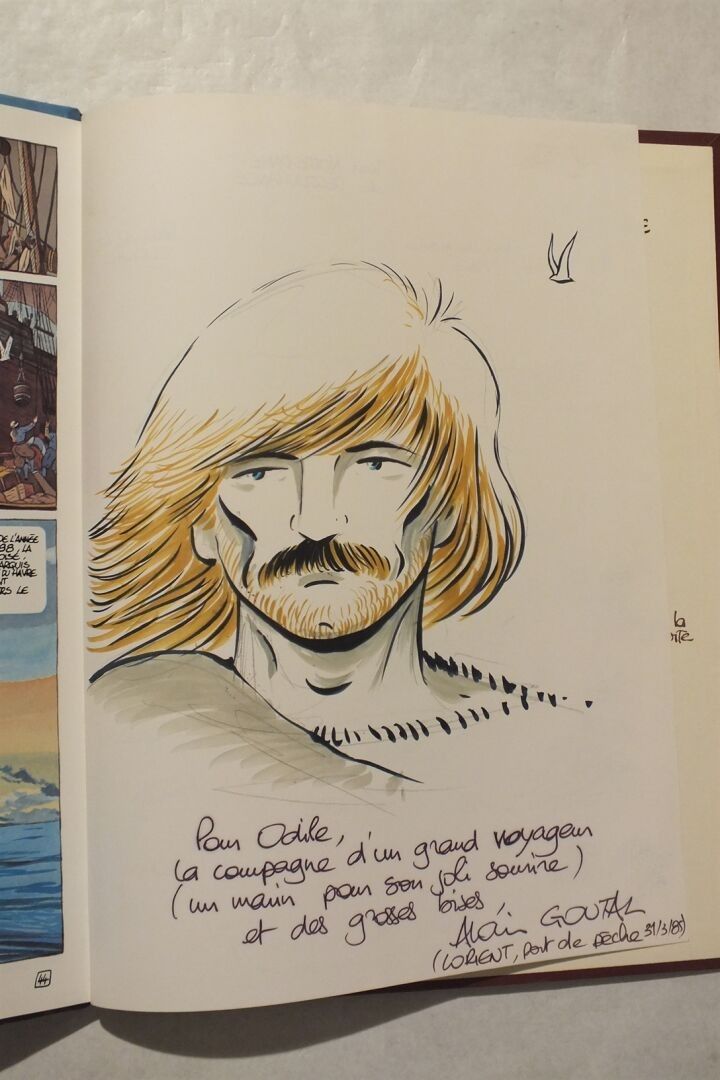 DE L'ANNÉE
98, LA
OISE.
ARQUIS
DU HAVRE
NT
RS LE
44
E
la
rté
Pour Odile,
la compagne d'un grand voyageur
(un marin pour son joli sourire)
et des grosses bises,
Alain GOUTAL
(LORIENT, port de pêche 31/3/85)